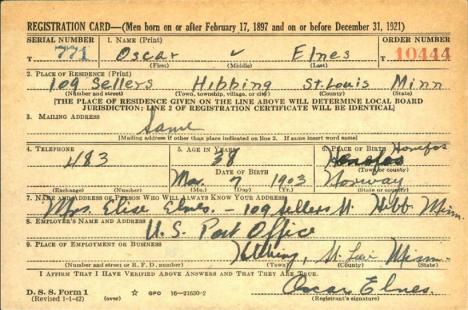 REGISTRATION CARD—(Men born on or after February 17, 1897 and on or before December 31, 1921)
SERIAL NUMBER 1. NAME (Print) ORDER NUMBER
T 771 Oscar Elnes T 10444
(First) (Middle) (Last)
2. PLACE OF RESIDENCE (Print)
109 Sellers Hibbing St. Louis Minn
(Number and street) (Town, township, village, or city) (County) (State)
[THE PLACE OF RESIDENCE GIVEN ON THE LINE ABOVE WILL DETERMINE LOCAL BOARD
JURISDICTION; LINE 2 OF REGISTRATION CERTIFICATE WILL BE IDENTICAL]
3. MAILING ADDRESS
Same
[Mailing address if other than place indicated on line 2. If same insert word same]
4. TELEPHONE 5. AGE IN YEARS 6. PLACE OF BIRTH Honefos
483 38 Honefos
DATE OF BIRTH (Town or county)
Mar. 7 1903 Norway
(Exchange) (Number) (Mo.) (Day) (Yr.) (State or country)
7. NAME AND ADDRESS OF PERSON WHO WILL ALWAYS KNOW YOUR ADDRESS
Mrs. Elise Elnes. - 109 Sellers St. Hibb Minn.
8. EMPLOYER'S NAME AND ADDRESS
U.S. Post Office
9. PLACE OF EMPLOYMENT OR BUSINESS
Hibbing, St. Louis Minn.
(Number and street or R. F. D. number) (Town) (County) (State)
I AFFIRM THAT I HAVE VERIFIED ABOVE ANSWERS AND THAT THEY ARE TRUE.
D. S. S. Form 1 Oscar Elnes.
(Revised 1-1-42) (over) ☆ GPO 16—21630-2 (Registrant's signature)